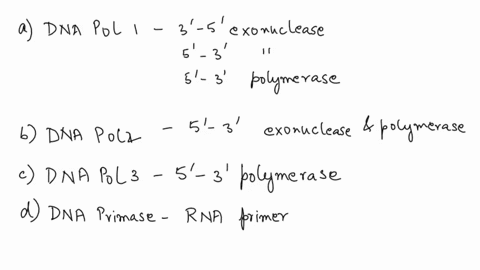 a) DNA POL 1 - 3'-5' exonuclease
5'-3' "
5'-3' polymerase
b) DNA POL2 - 5'-3' exonuclease & polymerase
c) DNA POL 3 - 5'-3' polymerase
d) DNA Primase - RNA primer